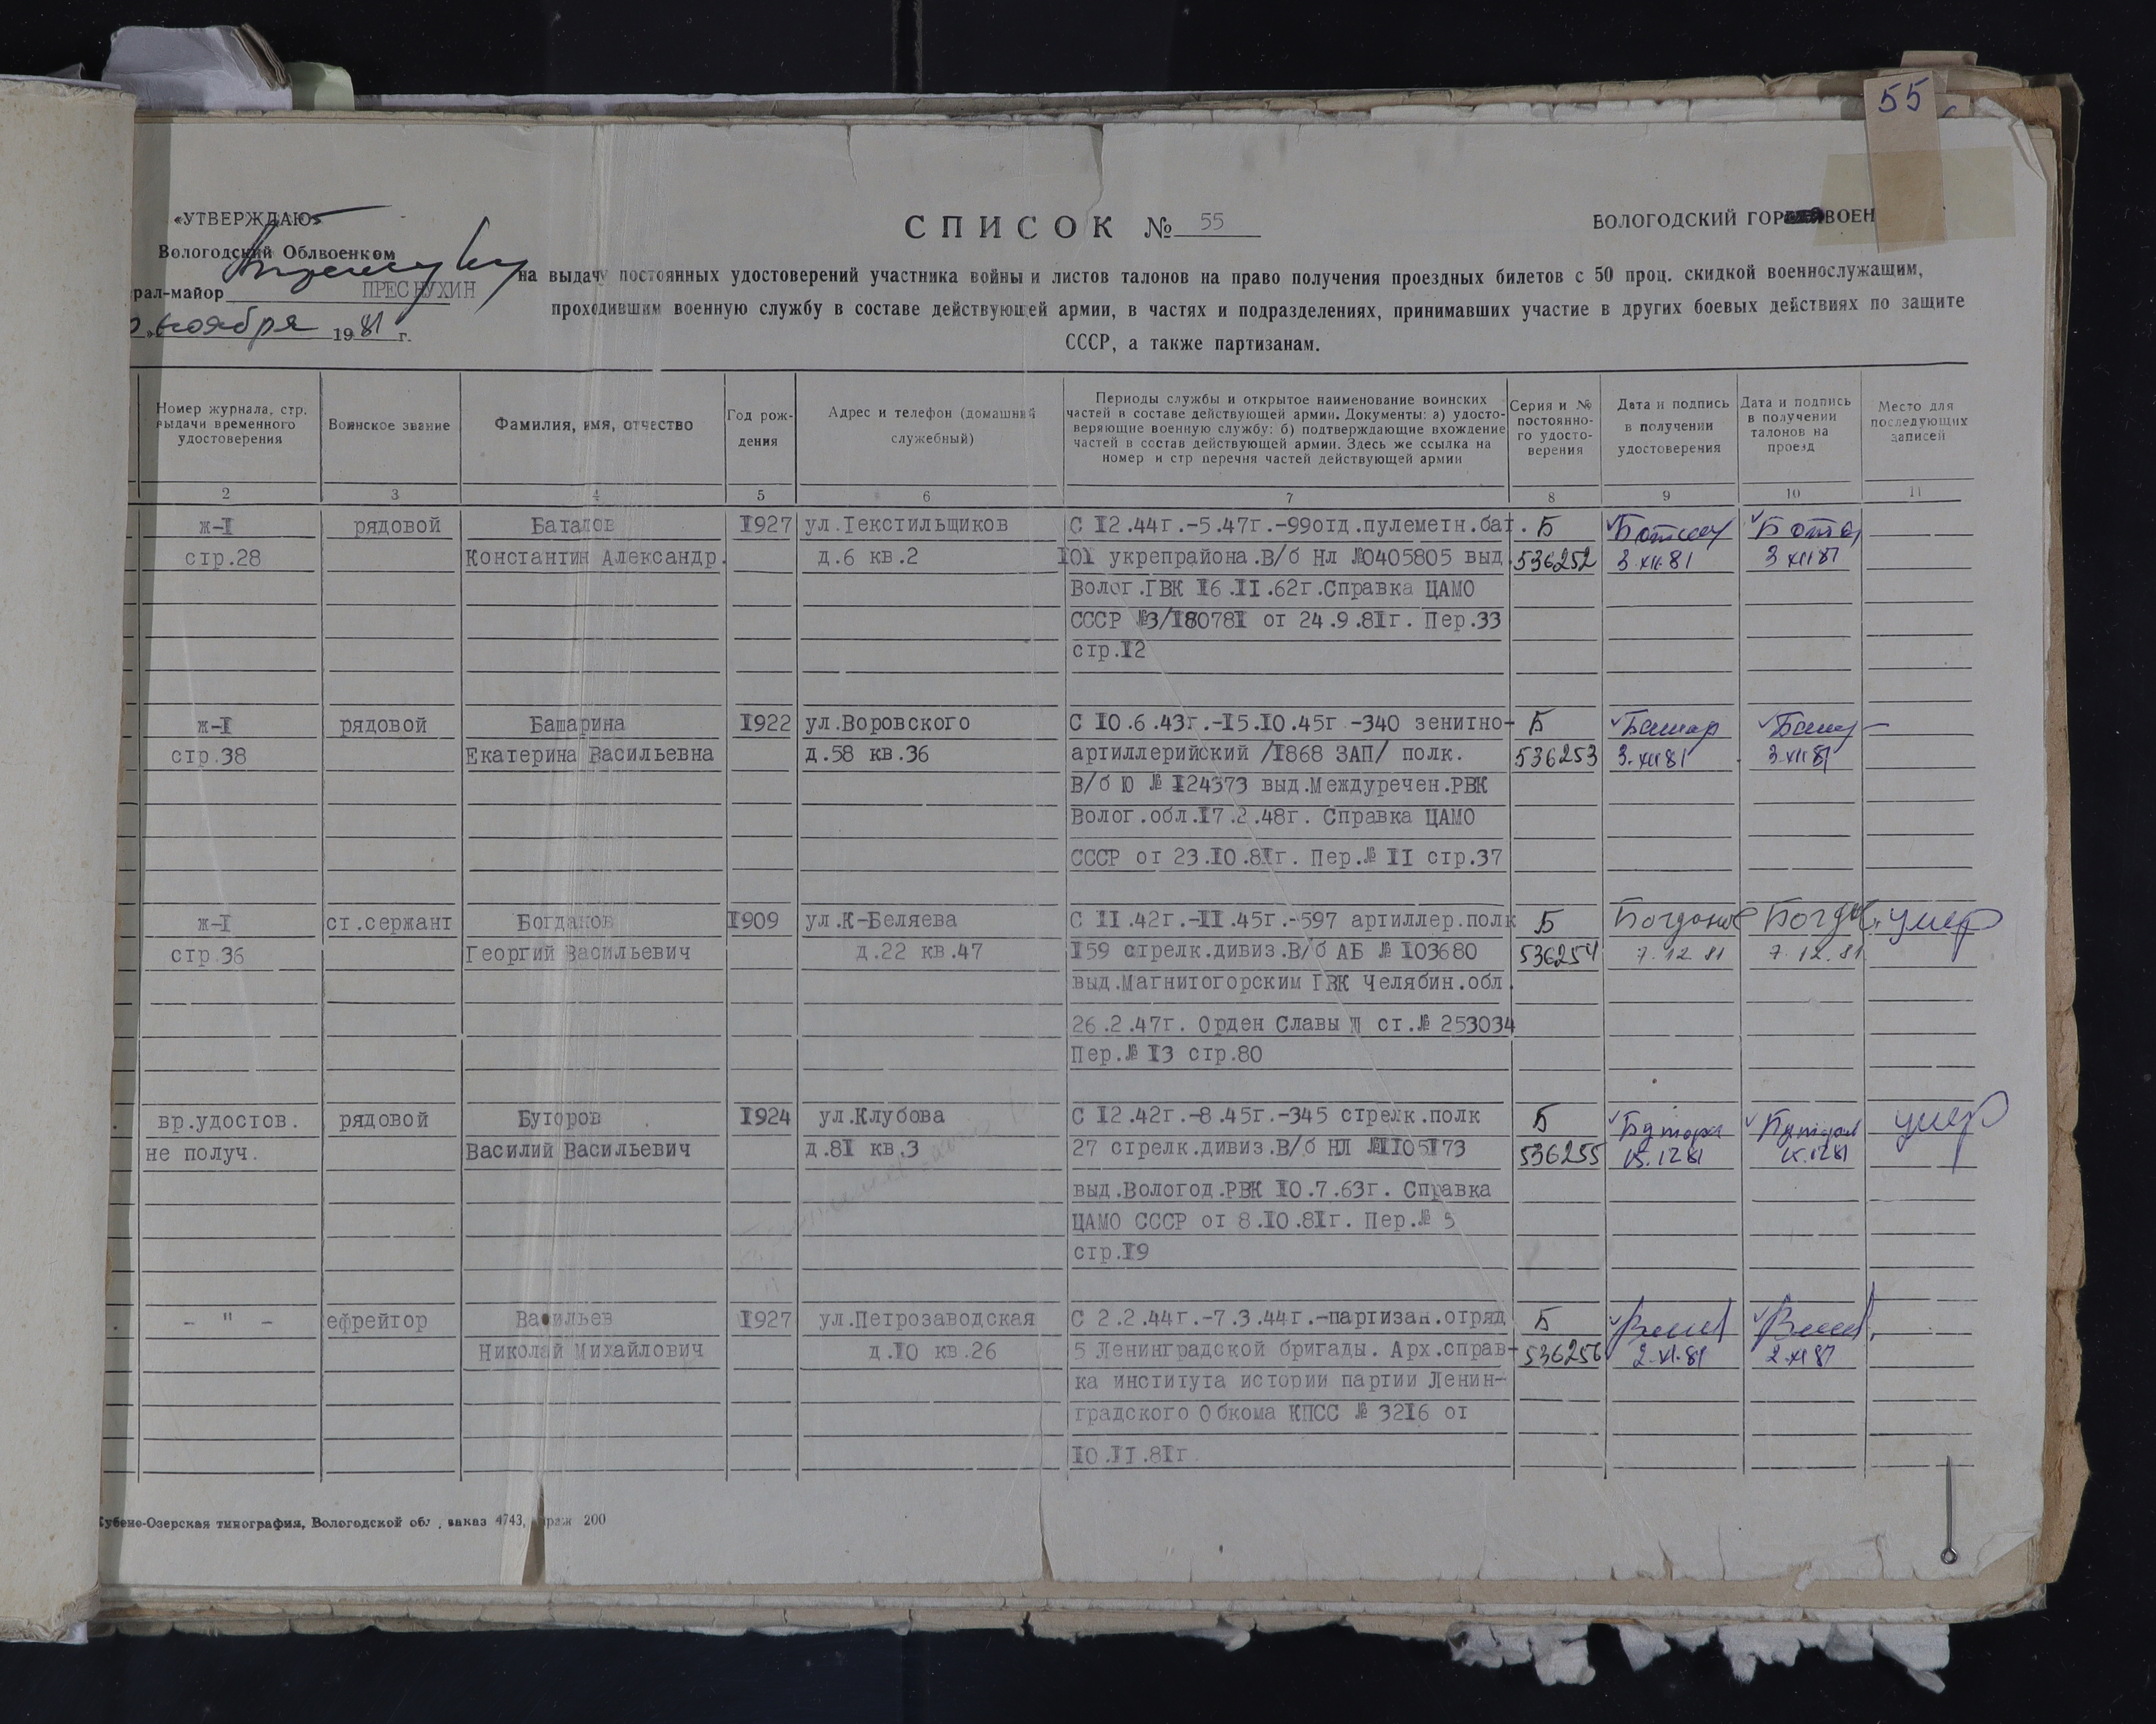 55
«УТВЕРЖДАЮ»
Вологодский Облвоенком
рал-майор ПРЕСНУХИН
ноября 1981 г.
СПИСОК № 55
ВОЛОГОДСКИЙ ГОР ВОЕН
на выдачу постоянных удостоверений участника войны и листов талонов на право получения проездных билетов с 50 проц. скидкой военнослужащим,
проходившим военную службу в составе действующей армии, в частях и подразделениях, принимавших участие в других боевых действиях по защите
СССР, а также партизанам.
Номер журнала, стр. выдачи временного удостоверения
Воинское звание
Фамилия, имя, отчество
Год рож-
дения
Адрес и телефон (домашний
служебный)
Периоды службы и открытое наименование воинских
частей в составе действующей армии. Документы: а) удосто-
веряющие военную службу: б) подтверждающие вхождение
частей в состав действующей армии. Здесь же ссылка на
номер и стр перечня частей действующей армии
Серия и №
постоянно-
го удосто-
верения
Дата и подпись
в получении
удостоверения
Дата и подпись
в получении
талонов на
проезд
Место для
последующих
записей
2 3 4 5 6 7 8 9 10 11
ж-I рядовой Баталов I927 ул.Текстильщиков С I2.44г.-5.47г.-99отд.пулеметн.бат. Б
стр.28 Константин Александр. д.6 кв.2 I0I укрепрайона.В/б Нл №0405805 выд. 536252 3.XII.81 3 XII 81
Волог.ГВК I6.II.62г.Справка ЦАМО
СССР №3/I8078I от 24.9.8Iг. Пер.33
стр.I2
ж-I рядовой Башарина I922 ул.Воровского С I0.6.43г.-I5.I0.45г -340 зенитно- Б Башар Башар
стр.38 Екатерина Васильевна д.58 кв.36 артиллерийский /I868 ЗАП/ полк. 536253 3.XII 81 3.XII 81
В/б Ю № I24373 выд.Междуречен.РВК
Волог.обл.I7.2.48г. Справка ЦАМО
СССР от 23.I0.8Iг. Пер.№ II стр.37
ж-I ст.сержант Богданов I909 ул.К-Беляева С II.42г.-II.45г.-597 артиллер.полк Б Богданов Богдан умер
стр.36 Георгий Васильевич д.22 кв.47 I59 стрелк.дивиз.В/б АБ № I03680 536254 7.12.81 7.12.81
выд.Магнитогорским ГВК Челябин.обл.
26.2.47г. Орден Славы Ш ст.№ 253034
Пер.№ I3 стр.80
вр.удостов. рядовой Буторов I924 ул.Клубова С I2.42г.-8.45г.-345 стрелк.полк Б умер
не получ. Василий Васильевич д.8I кв.3 27 стрелк.дивиз.В/б НЛ №II05I73 536255 15.12 81 15.12 81
выд.Вологод.РВК I0.7.63г. Справка
ЦАМО СССР от 8.I0.8Iг. Пер.№ 5
стр.I9
- " - ефрейтор Васильев I927 ул.Петрозаводская С 2.2.44г.-7.3.44г.-партизан.отряд Б
Николай Михайлович д.I0 кв.26 5 Ленинградской бригады. Арх.справ- 536256 2.XI.81 2.XI 81
ка института истории партии Ленин-
градского Обкома КПСС № 32I6 от
I0.II.8Iг.
Кубено-Озерская типография, Вологодской обл., заказ 4743, тираж 200